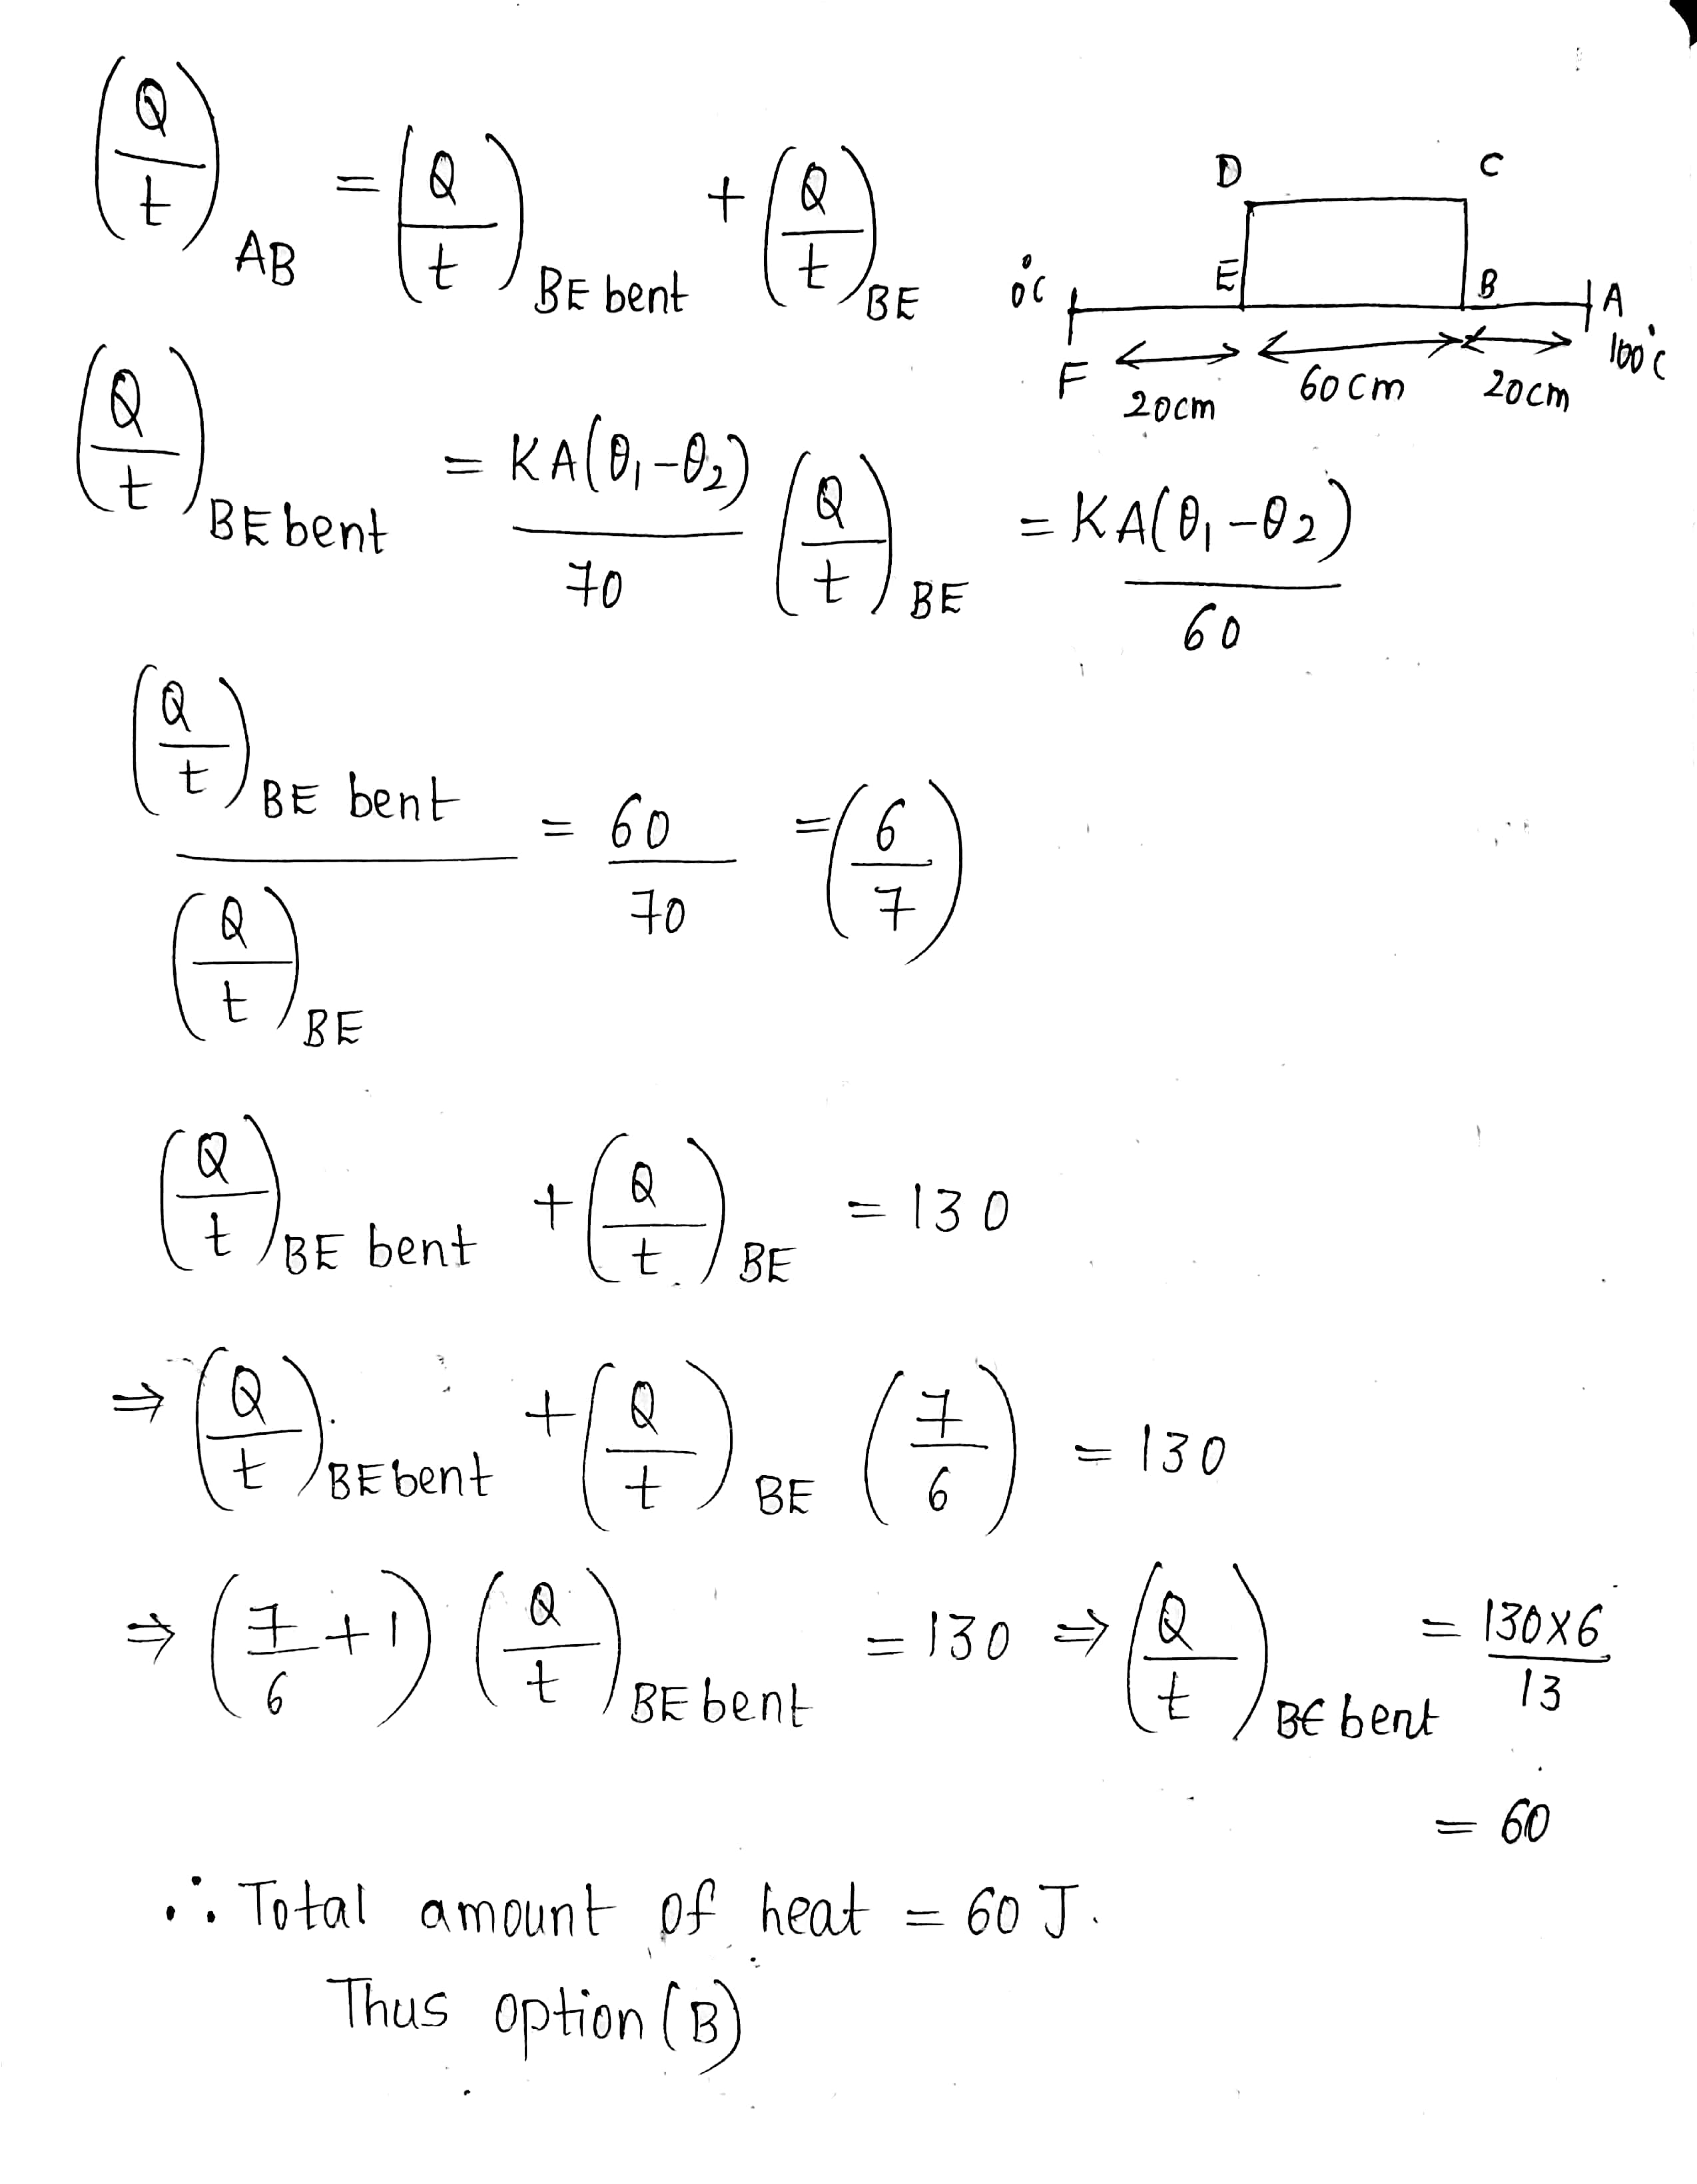 (Q/t)AB = (Q/t)BE bent + (Q/t)BE
D C
E B
0°C A
F 100°C
20cm 60cm 20cm
(Q/t)BE bent = KA(θ₁-θ₂)/70 (Q/t)BE = KA(θ₁-θ₂)/60
(Q/t)BE bent/(Q/t)BE = 60/70 = (6/7)
(Q/t)BE bent + (Q/t)BE = 130
⇒ (Q/t)BE bent + (Q/t)BE (7/6) = 130
⇒ (7/6+1) (Q/t)BE bent = 130 ⇒ (Q/t)BE bent = 130×6/13
= 60
∴ Total amount of heat = 60 J.
Thus option (B)